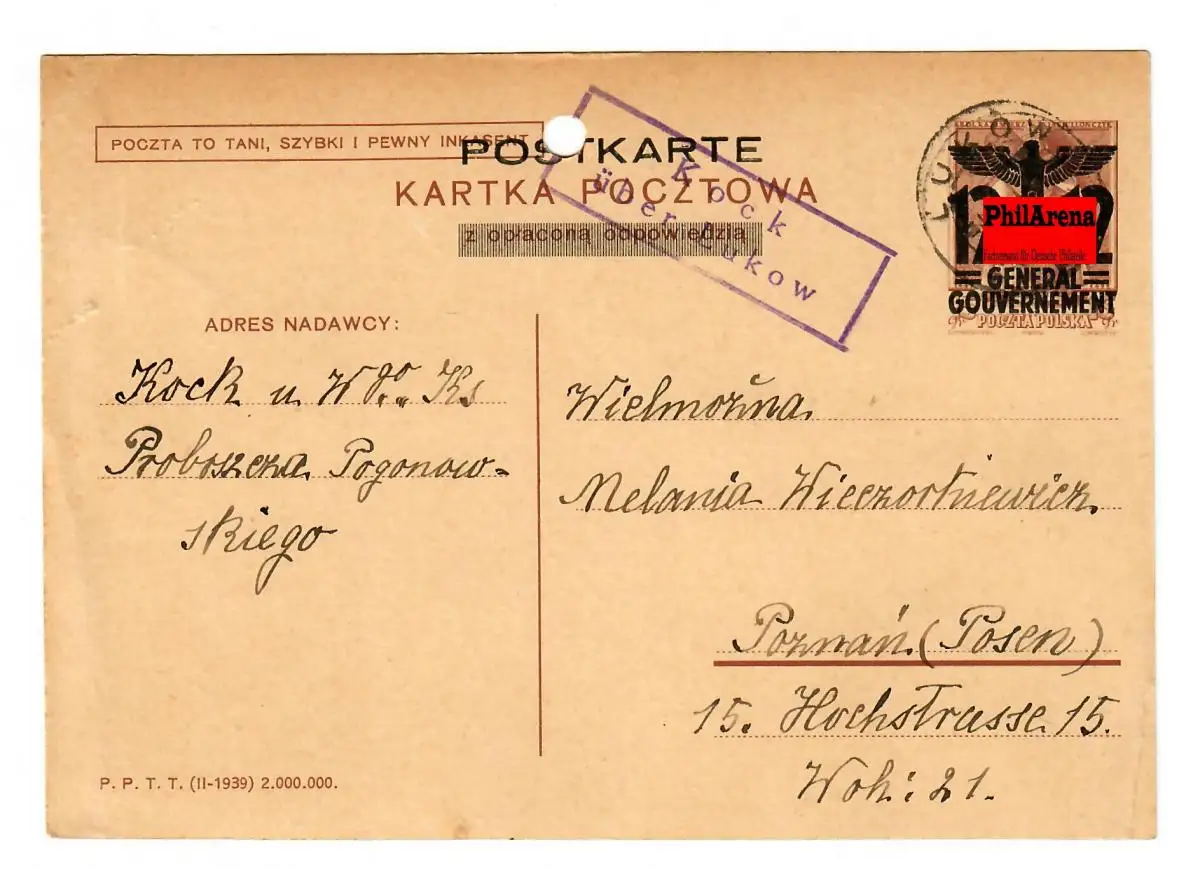 POCZTA TO TANI, SZYBKI I PEWNY INKASENT
POSTKARTE
KARTKA POCZTOWA
z opłaconą odpowiedzią
Kock
über Łukow
ŁUKÓW
12 12
PhilArena
Fachversand für Deutsche Philatelie
GENERAL
GOUVERNEMENT
gr POCZTA POLSKA gr
ADRES NADAWCY:
Kock u W
Ks
Proboszcza Pogonow-
skiego
Wielmożna
Melania Wieczorkiewicz
Poznań (Posen)
15. Hochstrasse 15.
Woh: 21.
P. P. T. T. (II-1939) 2.000.000.